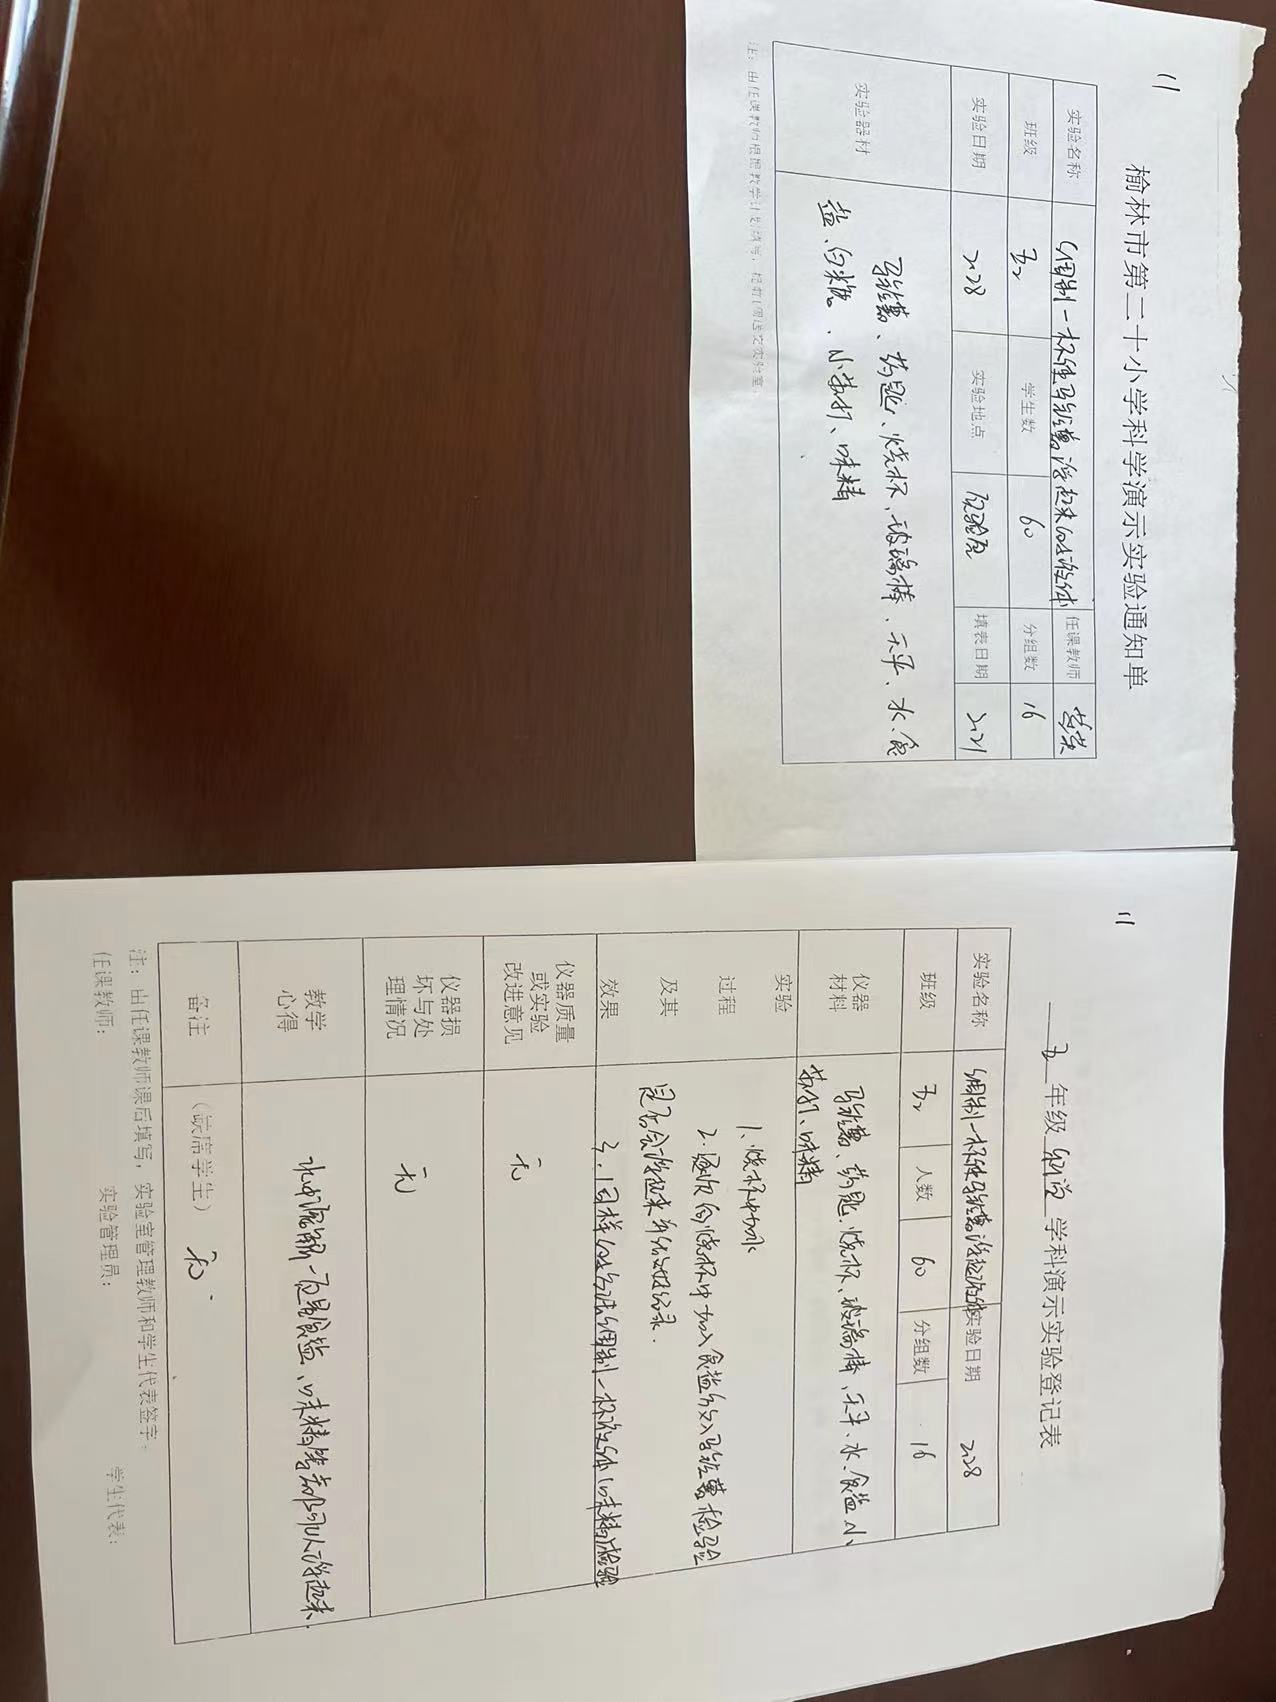 11
榆林市第二十小学科学演示实验通知单
实验名称 调制一杯使马铃薯浮起来的液体 任课教师
班级 五2 学生数 60 分组数 16
实验日期 2.28 实验地点 实验室 填表日期 2.21
实验器材 马铃薯、药匙、烧杯、玻璃棒、天平、水、食
盐、白糖、小苏打、味精
注：由任课教师根据教学计划填写，提前1周送交实验室。
11
五年级 科学 学科演示实验登记表
实验名称 调制一杯使马铃薯浮起液体 实验日期 2.28
班级 五2 人数 60 分组数 16
仪器材料 马铃薯、药匙、烧杯、玻璃棒、天平、水、食盐、小
苏打、味精
实验过程及其效果
1、烧杯中加水
2、逐次向烧杯中加入食盐放入马铃薯检验
是否会浮起来并做好记录.
3、同样的方法调制一杯液体（味精）检验
仪器质量或实验改进意见 无
仪器损坏与处理情况 无
教学心得 水中溶解一定量食盐、味精等都可以浮起来.
备注 （缺席学生） 无.
注：由任课教师课后填写，实验室管理教师和学生代表签字；
任课教师： 实验管理员： 学生代表：